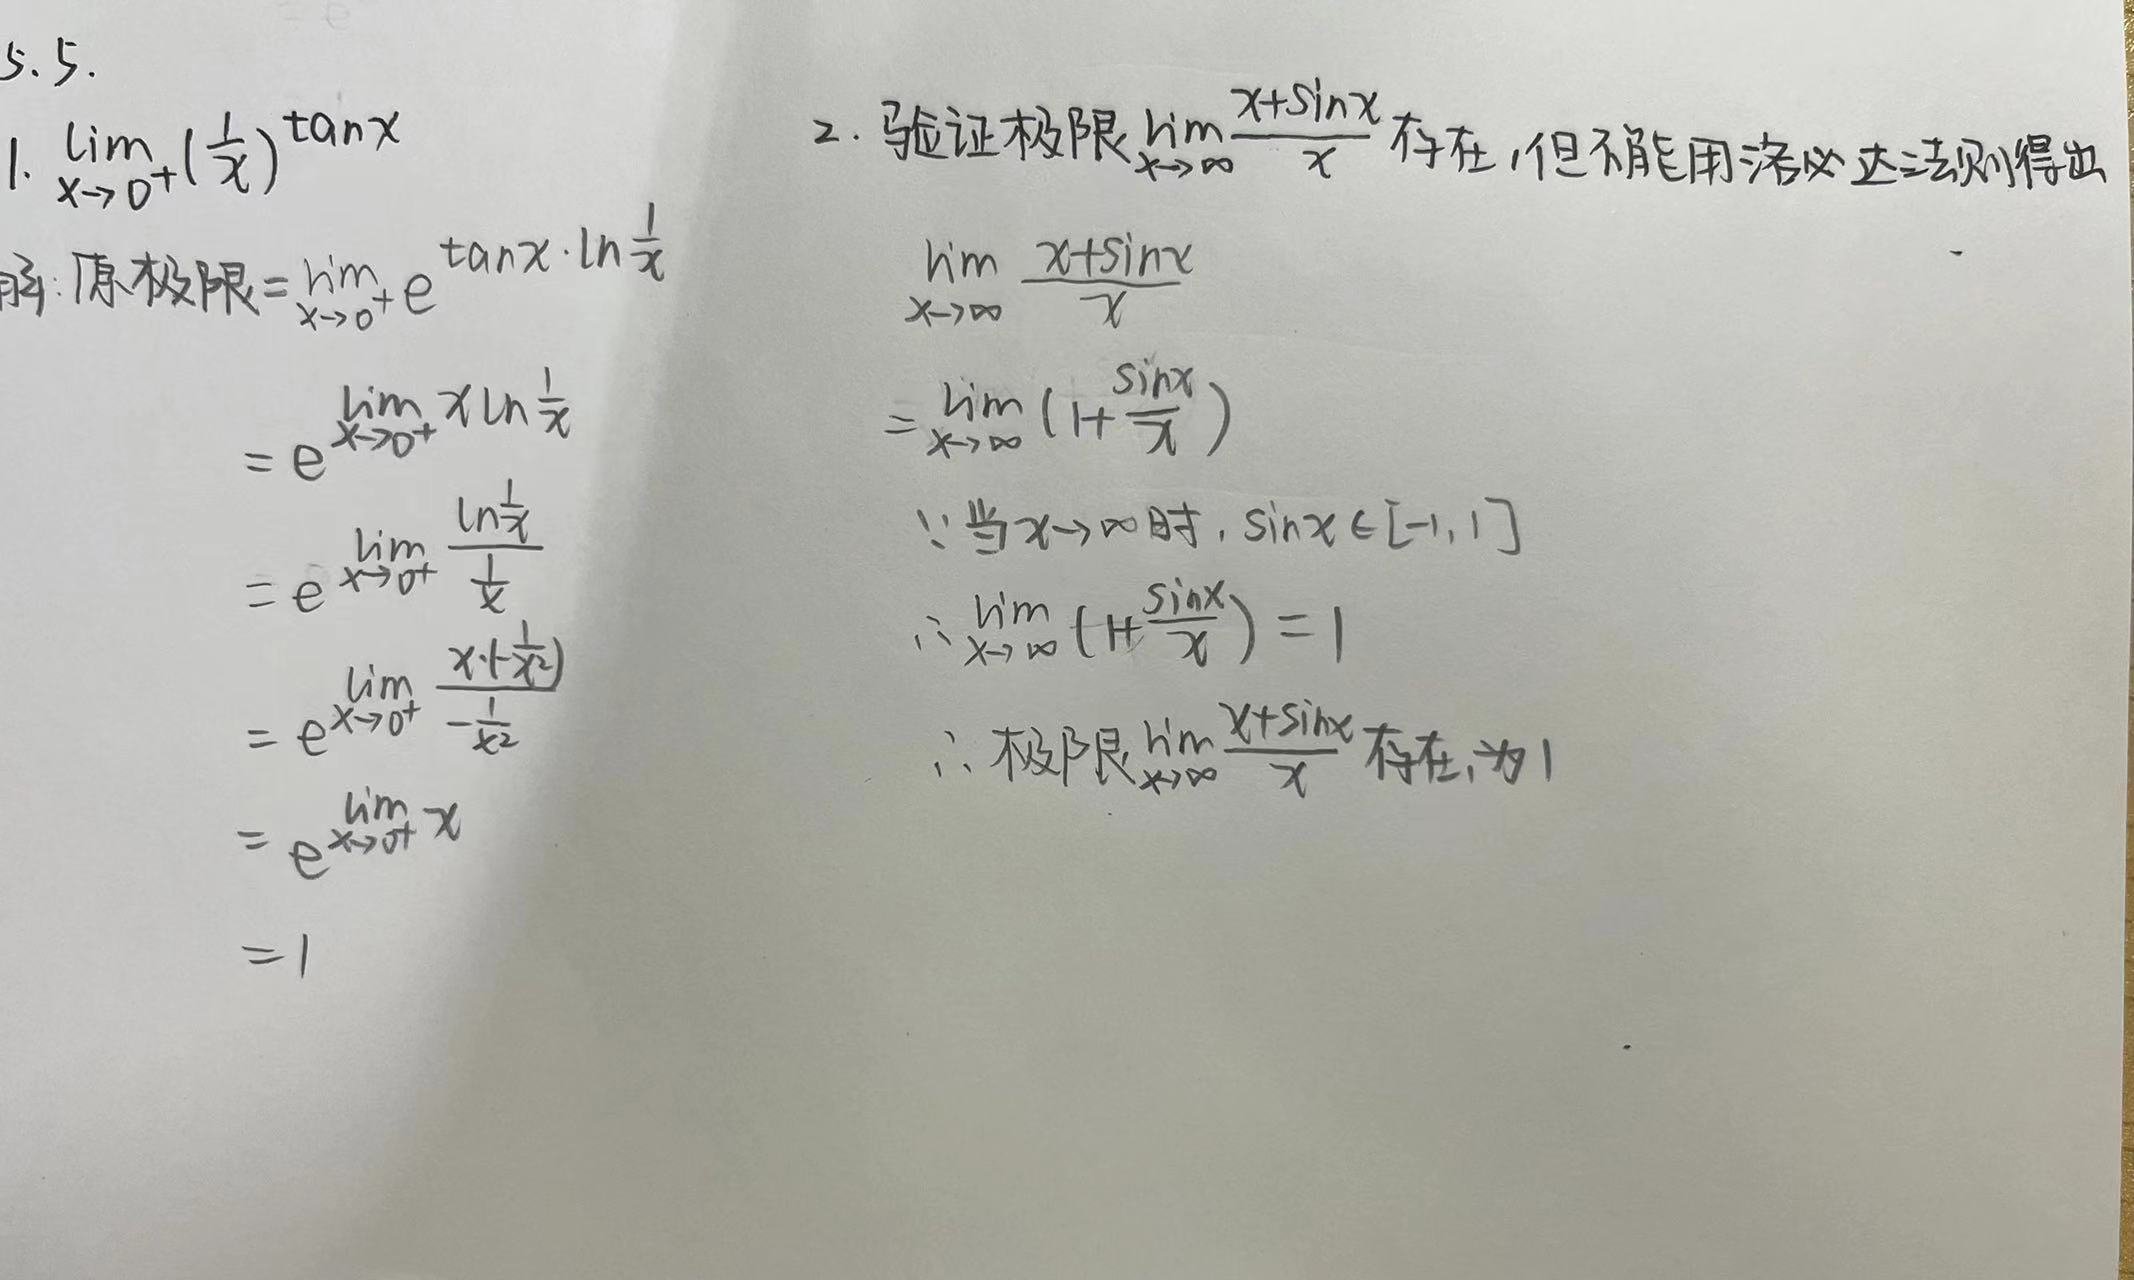 5.5.
1. lim_{x→0⁺} (1/x)^{tanx}
解: 原极限 = lim_{x→0⁺} e^{tanx·ln 1/x}
= e^{lim_{x→0⁺} x ln 1/x}
= e^{lim_{x→0⁺} (ln 1/x)/(1/x)}
= e^{lim_{x→0⁺} (x·(-1/x²))/(-1/x²)}
= e^{lim_{x→0⁺} x}
= 1
2. 验证极限 lim_{x→∞} (x+sinx)/x 存在,但不能用洛必达法则得出
lim_{x→∞} (x+sinx)/x
= lim_{x→∞} (1+ sinx/x)
∵ 当x→∞时, sinx∈[-1,1]
∴ lim_{x→∞} (1+ sinx/x) = 1
∴ 极限 lim_{x→∞} (x+sinx)/x 存在,为1